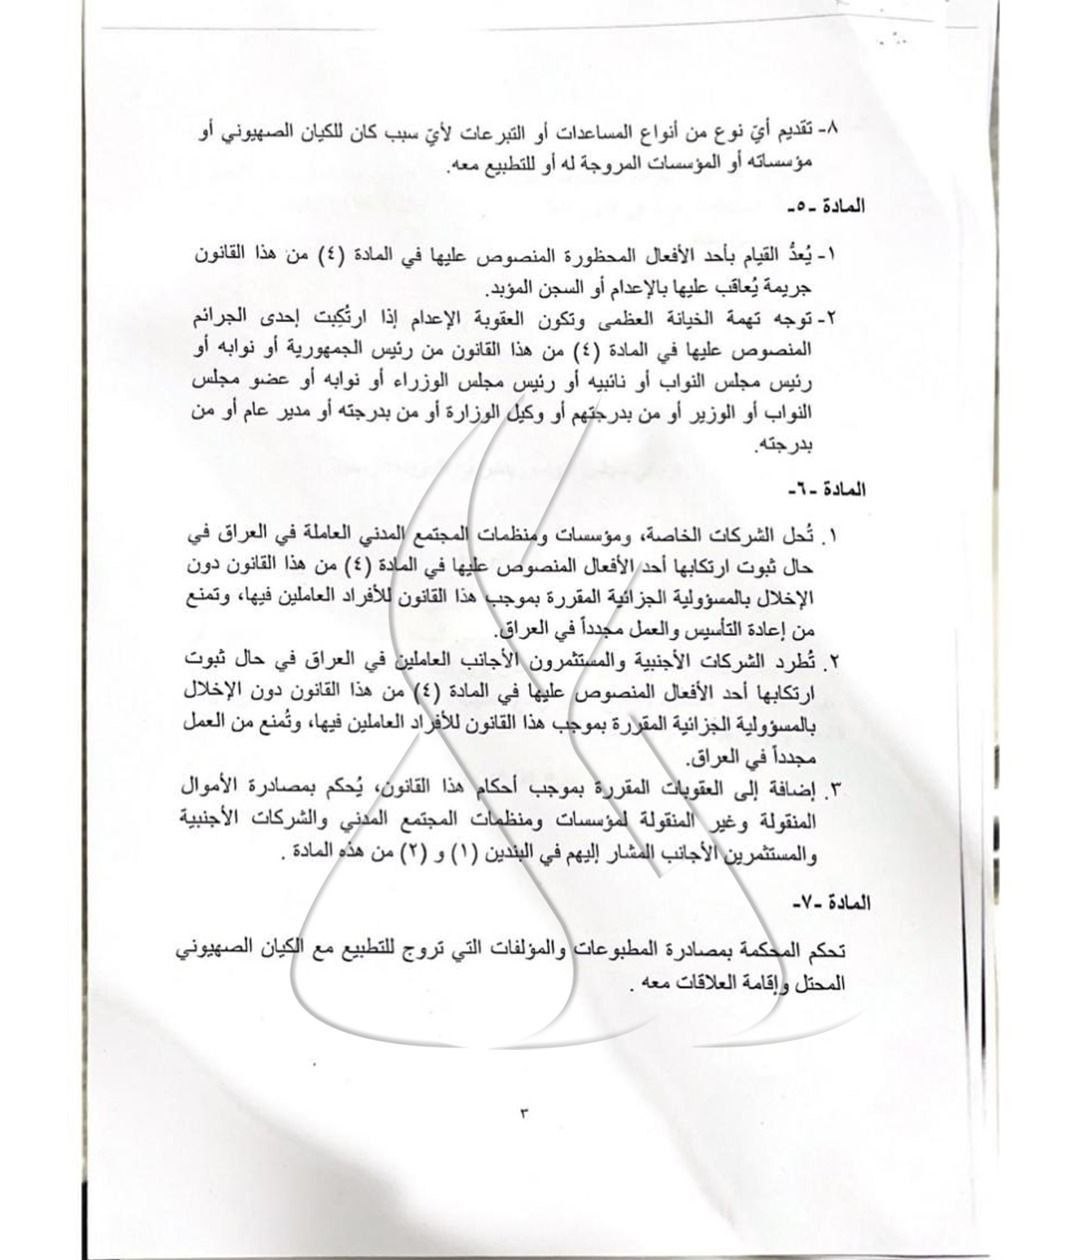 ٨- تقديم أيّ نوع من أنواع المساعدات أو التبرعات لأيّ سبب كان للكيان الصهيوني أو
مؤسساته أو المؤسسات المروجة له أو للتطبيع معه.
المادة -٥-
١- يُعدُّ القيام بأحد الأفعال المحظورة المنصوص عليها في المادة (٤) من هذا القانون
جريمة يُعاقب عليها بالإعدام أو السجن المؤبد.
٢- توجه تهمة الخيانة العظمى وتكون العقوبة الإعدام إذا ارتُكِبت إحدى الجرائم
المنصوص عليها في المادة (٤) من هذا القانون من رئيس الجمهورية أو نوابه أو
رئيس مجلس النواب أو نائبيه أو رئيس مجلس الوزراء أو نوابه أو عضو مجلس
النواب أو الوزير أو من بدرجتهم أو وكيل الوزارة أو من بدرجته أو مدير عام أو من
بدرجته.
المادة -٦-
١. تُحل الشركات الخاصة، ومؤسسات ومنظمات المجتمع المدني العاملة في العراق في
حال ثبوت ارتكابها أحد الأفعال المنصوص عليها في المادة (٤) من هذا القانون دون
الإخلال بالمسؤولية الجزائية المقررة بموجب هذا القانون للأفراد العاملين فيها، وتمنع
من إعادة التأسيس والعمل مجدداً في العراق.
٢. تُطرد الشركات الأجنبية والمستثمرون الأجانب العاملين في العراق في حال ثبوت
ارتكابها أحد الأفعال المنصوص عليها في المادة (٤) من هذا القانون دون الإخلال
بالمسؤولية الجزائية المقررة بموجب هذا القانون للأفراد العاملين فيها، وتُمنع من العمل
مجدداً في العراق.
٣. إضافة إلى العقوبات المقررة بموجب أحكام هذا القانون، يُحكم بمصادرة الأموال
المنقولة وغير المنقولة لمؤسسات ومنظمات المجتمع المدني والشركات الأجنبية
والمستثمرين الأجانب المشار إليهم في البندين (١) و (٢) من هذه المادة .
المادة -٧-
تحكم المحكمة بمصادرة المطبوعات والمؤلفات التي تروج للتطبيع مع الكيان الصهيوني
المحتل وإقامة العلاقات معه .
٣